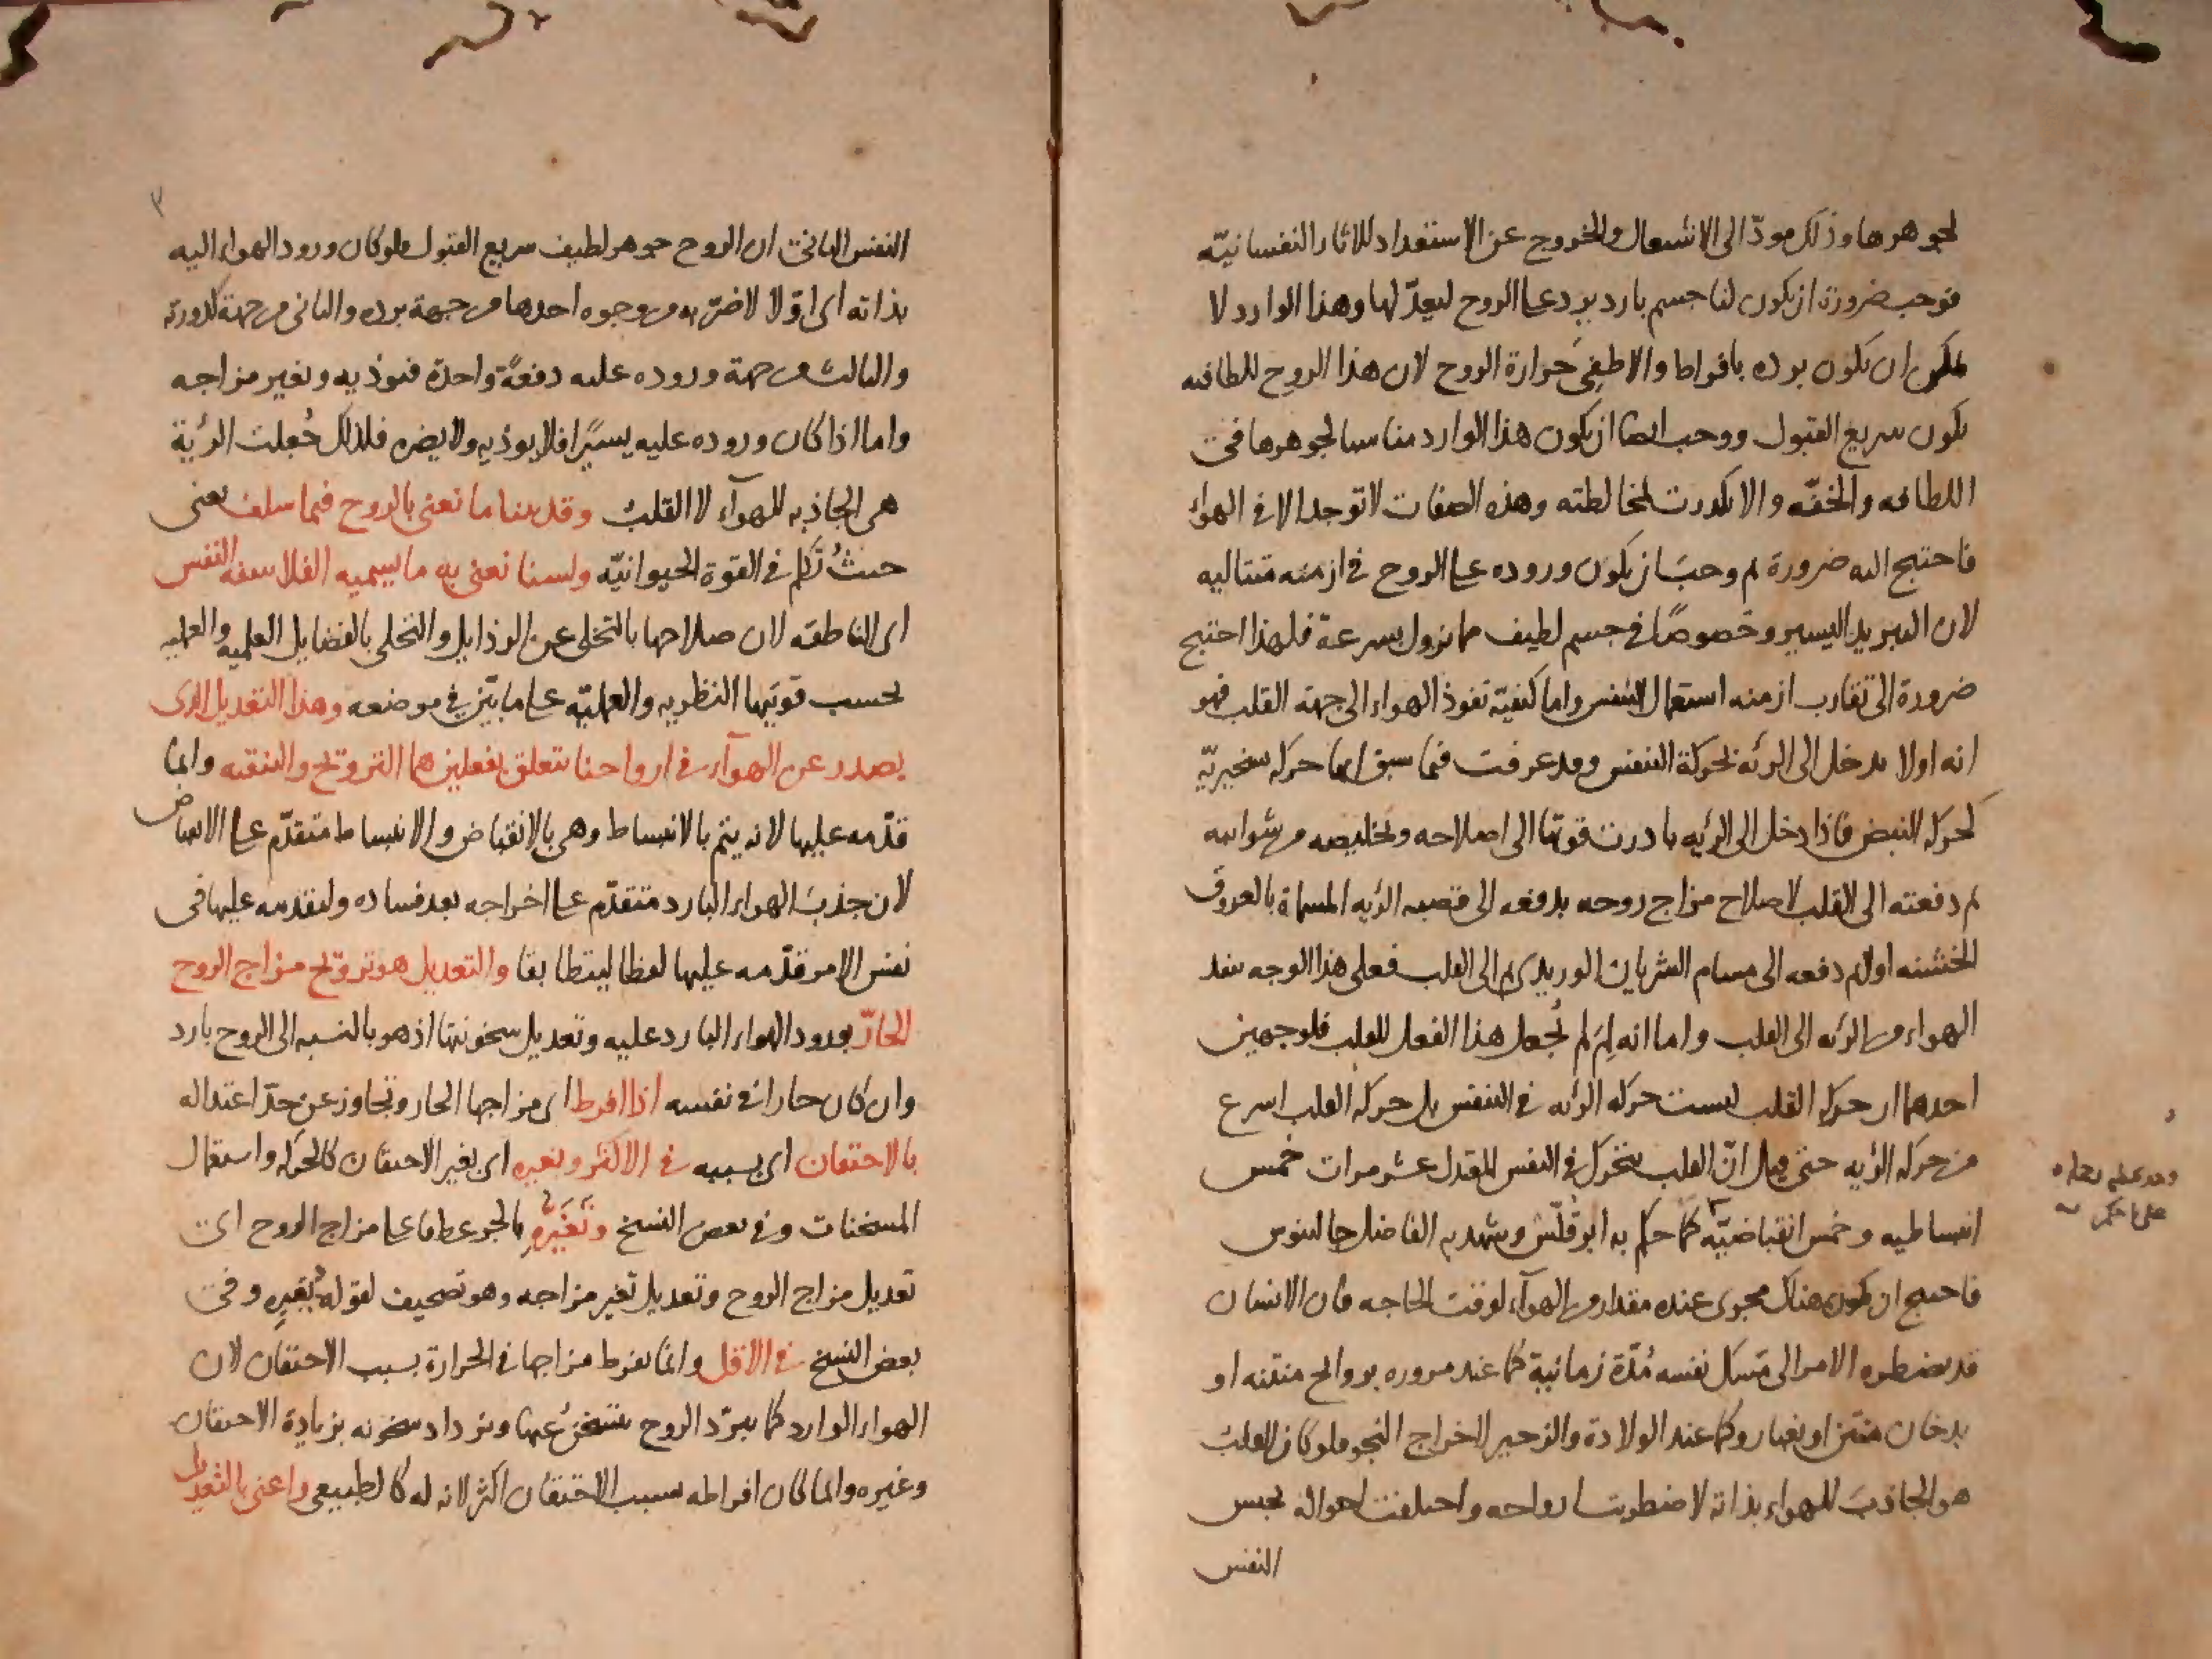 لجوهرها وذلك مودّ الى الاشتعال والخروج عن الاستعداد للاثار النفسانيّة
فوجب ضرورة ان يكون لنا جسم بارد يرد على الروح ليعدّلها وهذا الوارد لا
يمكن ان يكون برده بافراط والا طفئ حرارة الروح لان هذا الروح للطافته
يكون سريع القبول ووجب ايضا ان يكون هذا الوارد مناسبا لجوهرها في
اللطافه والخفّه والا تكدرت لمخالطته وهذه الصفات لا توجد الا في الهواء
فاحتيج اليه ضرورة ثم وجب ان يكون وروده على الروح في ازمنه متتاليه
لان التبريد اليسير وخصوصًا في جسم لطيف مما يزول بسرعة فلهذا احتيج
ضرورة الى تقارب ازمنه استعمال التنفس واما كيفيّة نفوذ الهواء الى جهة القلب فهو
انه اولا يدخل الى الرئه بحركة التنفس وقد عرفت فيما سبق انها حركه تسخيريّه
كحركه النبض فاذا دخل الى الريه بادرت قوتها الى اصلاحه وتخليصه من شوائبه
ثم دفعته الى القلب لاصلاح مزاج روحه بدفعه الى قصبه الريه المسماة بالعروق
الخشنه اولا ثم دفعه الى مسام الشريان الوريدى ثم الى القلب فعلى هذا الوجه ينفد
الهواء من الرئه الى القلب واما انه لِمَ لم يُجعل هذا الفعل للقلب فلوجهين
احدهما ان حركه القلب ليست حركه الرئه في التنفس بل حركه القلب اسرع
من حركه الريه حتى قيل انّ القلب يتحرك في النفس المعتدل عشر مرات خمس
انبساطيه وخمس انقباضيّه كما حكم به ابوقلّس وشهد به الفاضل جالينوس
فاحتيج ان يكون هناك محوى عنده مقدار من الهوآء لوقت الحاجه فان الانسان
قد يضطره الامر الى مَسك نفسه مُدّة زمانية كما عند مروره بروايح منتنه او
بدخان منتن او بغبار وكما عند الولادة والزحير لاخراج النجو فلو كان القلب
هو الجاذب للهواء بذاته لاضطربت ارواحه واختلفت احواله بحبس
النفس
النفس الثانى ان الروح جوهر لطيف سريع القبول فلو كان ورود الهواء اليه
بذاته اى اوّلا لاضرّ به من وجوه احدها من جهة برده والثانى من جهة كدورته
والثالث من جهة وروده عليه دفعةً واحدة فيوذيه ويغير مزاجه
واما اذا كان وروده عليه يسيرًا فلا يوذيه ولا يضره فلذلك جُعلت الرئة
هى الجاذبه للهوآء لا القلب وقد بينا ما نعنى بالروح فيما سلف يعنى
حيثُ تكلم في القوة الحيوانيّه ولسنا نعنى به ما يسميه الفلاسفه النفس
اى الناطقه لان صلاحها بالتخلى عن الرذايل والتحلى بالفضايل العلميه والعمليه
بحسب قوتيها النظريه والعمليّه على ما بيّن في موضعه وهذا التعديل الذى
يصدر عن الهوآء في ارواحنا يتعلق بفعلين هما الترويح والتنقيه وانما
قدّمه عليها لانه يتم بالانبساط وهى بالانقباض والانبساط متقدّم على الانقباض
لان جذب الهواء البارد متقدّم على اخراجه بعد فساده ولتقدمه عليها في
نفس الامر قدّمه عليها لفظا ليتطابقا والتعديل هو ترويح مزاج الروح
الحارّ بورود الهواء البارد عليه وتعديل سخونتها اذ هو بالنسبه الى الروح بارد
وان كان حارا في نفسه اذا افرط اى مزاجها الحار وتجاوز عن حدّ اعتداله
بالاحتقان اى بسببه في الاكثر وبغيره اى بغير الاحتقان كالحركه واستعمال
المسخنات وفي بعض النسخ وتَغَيُّرِه بالجر عطفا على مزاج الروح اى
تعديل مزاج الروح وتعديل تغير مزاجه وهو تصحيف لقوله بغيرِه وفى
بعض النسخ في الاقل وانما يفرط مزاجها في الحرارة بسبب الاحتقان لان
الهواء الوارد كما يبرّد الروح يتسخن عنها وتزداد سخونته بزيادة الاحتقان
وغيره وانما كان افراطه بسبب الاحتقان اكثر لانه له كالطبيعى واعنى بالتعديل